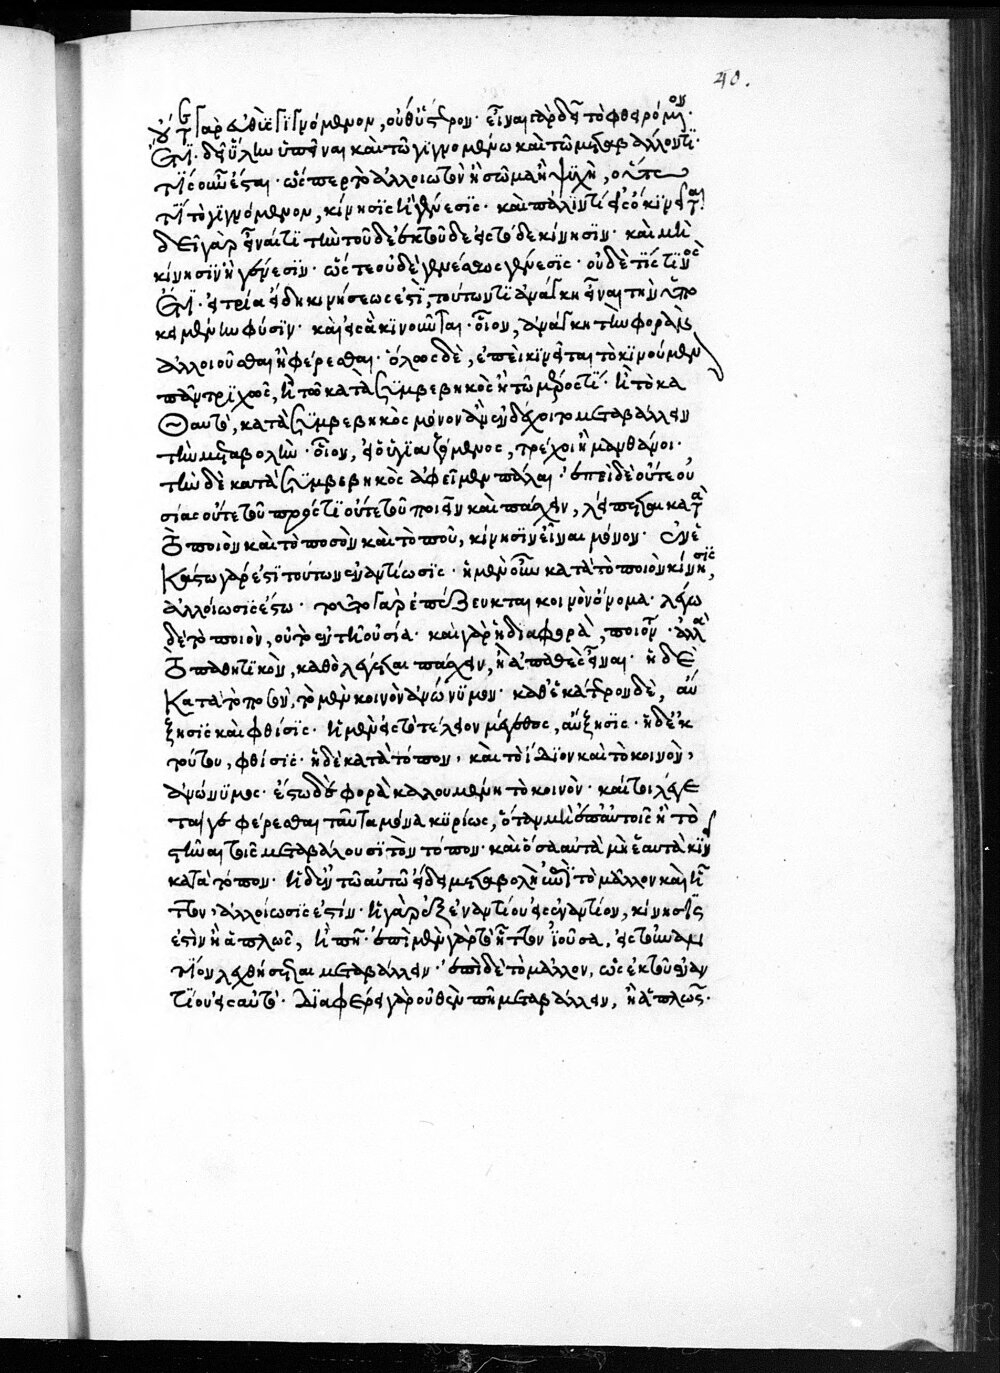 40.
οὔτε γὰρ εὐθὺς γιγνόμενον, οὔθ' ὕστερον· εἶναι γὰρ δεῖ τὸ φθειρόμενον·
ἔτι δεῖ ὕλην ὑπεῖναι καὶ τῷ γιγνομένῳ καὶ τῷ μεταβάλλοντι·
τίς οὖν ἔσται· ὥσπερ τὸ ἀλλοιωτὸν ἢ σῶμα ἢ ψυχὴ, οὕτω
τί τὸ γιγνόμενον, κίνησις ἢ γένεσις· καὶ πάλιν τί εἰς ὃ κινεῖται·
δεῖ γὰρ εἶναί τι τὴν τοῦδε ἐκ τοῦδε εἰς τόδε κίνησιν· καὶ μὴ
κίνησιν ἢ γένεσιν· ὥστε οὐδὲ γενέσεως γένεσις· οὐδέ τις τινὸς
ἔτι τρία εἴδη κινήσεώς ἐστι, τούτων τι ἀνάγκη εἶναι τὴν ὑπο
κειμένην φύσιν· καὶ εἰς ἃ κινοῦνται· οἷον, ἀνάγκη τὴν φορὰν
ἀλλοιοῦσθαι ἢ φέρεσθαι· ὅλως δὲ, ἐπεὶ κινεῖται τὸ κινούμενον
πᾶν τριχῶς, ἢ τῷ κατὰ συμβεβηκὸς ἢ τῷ μέρος τι· ἢ τὸ κα
θ' αυτό, κατὰ συμβεβηκὸς μόνον ἂν ἐνδέχοιτο μεταβάλλειν
τὴν μεταβολὴν· οἷον, εἰ ὁ ὑγιαζόμενος, τρέχοι ἢ μανθάνοι·
τὴν δὲ κατὰ συμβεβηκὸς ἀφεῖμεν πάλαι· ἐπεὶ δὲ οὔτε οὐ
σίας οὔτε τοῦ πρός τι οὔτε τοῦ ποιεῖν καὶ πάσχειν, λείπεται κατὰ
τὸ ποιὸν καὶ τὸ ποσὸν καὶ τὸ ποῦ, κίνησιν εἶναι μόνον· ἐν ἑ
κάστῳ γάρ ἐστι τούτων ἐναντίωσις· ἡ μὲν οὖν κατὰ τὸ ποιὸν κίνησις,
ἀλλοίωσις ἔστω· τοῦτο γὰρ ἐπέζευκται κοινὸν ὄνομα· λέγω
δὲ τὸ ποιὸν, οὐ τὸ ἐν τῇ οὐσίᾳ· καὶ γὰρ ἡ διαφορὰ, ποιόν· ἀλλὰ
τὸ παθητικὸν, καθ' ὃ λέγεται πάσχειν, ἢ ἀπαθὲς εἶναι· ἡ δὲ
κατὰ τὸ ποσὸν, τὸ μὲν κοινὸν ἀνώνυμον· καθ' ἑκάτερον δὲ, αὔ
ξησις καὶ φθίσις· ἡ μὲν εἰς τὸ τέλειον μέγεθος, αὔξησις· ἡ δ' ἐκ
τούτου, φθίσις· ἡ δὲ κατὰ τόπον, καὶ τὸ ἴδιον καὶ τὸ κοινὸν,
ἀνώνυμος· ἔστω δὲ φορὰ καλουμένη τὸ κοινὸν· καίτοι λέγε
ται γε φέρεσθαι ταῦτα μόνα κυρίως, ὅταν μὴ ἐπ' αὐτοῖς ᾖ τὸ
στῆναι τοῖς μεταβάλλουσι τὸν τόπον· καὶ ὅσα αὐτὰ μὴ ἑαυτὰ κινεῖ
κατὰ τόπον· ἡ δ' ἐν τῷ αὐτῷ εἴδει μεταβολὴ ἐπὶ τὸ μᾶλλον καὶ ἧτ
τον, ἀλλοίωσίς ἐστίν· ἢ γὰρ ἐξ ἐναντίου εἰς ἐναντίον, κίνησίς
ἐστιν ἢ ἁπλῶς, ἢ πῇ· ἐπὶ μὲν γὰρ τὸ ἧττον ἰοῦσα, εἰς τοὐναν
τίον λεχθήσεται μεταβάλλειν· ἐπὶ δὲ τὸ μᾶλλον, ὡς ἐκ τοῦ ἐναν
τίου εἰς αὐτό· διαφέρει γὰρ οὐθὲν πῇ μεταβάλλειν, ἢ ἁπλῶς·